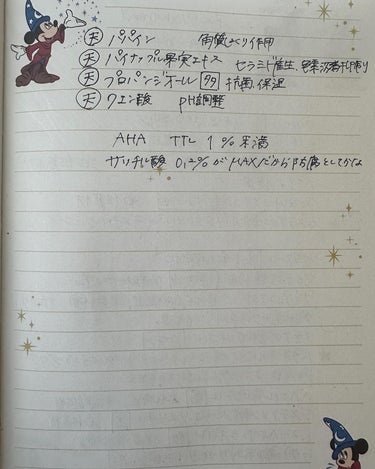 ㊝ パパイン 角質づくり作用
㊝ パイナップル果実エキス セラミド産生、色素沈着抑制
㊝ プロパンジオール 99 抗菌、保湿
㊝ クエン酸 pH調整
AHA TTL 1%未満
サリチル酸 0.2%がMAXだから防腐としてかな